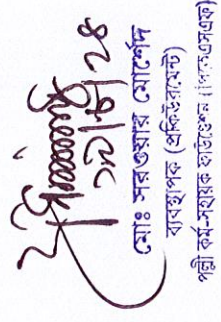 মোঃ সরওয়ার মোর্শেদ
ব্যবস্থাপক (প্রকিউরমেন্ট)
পল্লী কর্ম-সহায়ক ফাউন্ডেশন (পিকেএসএফ)